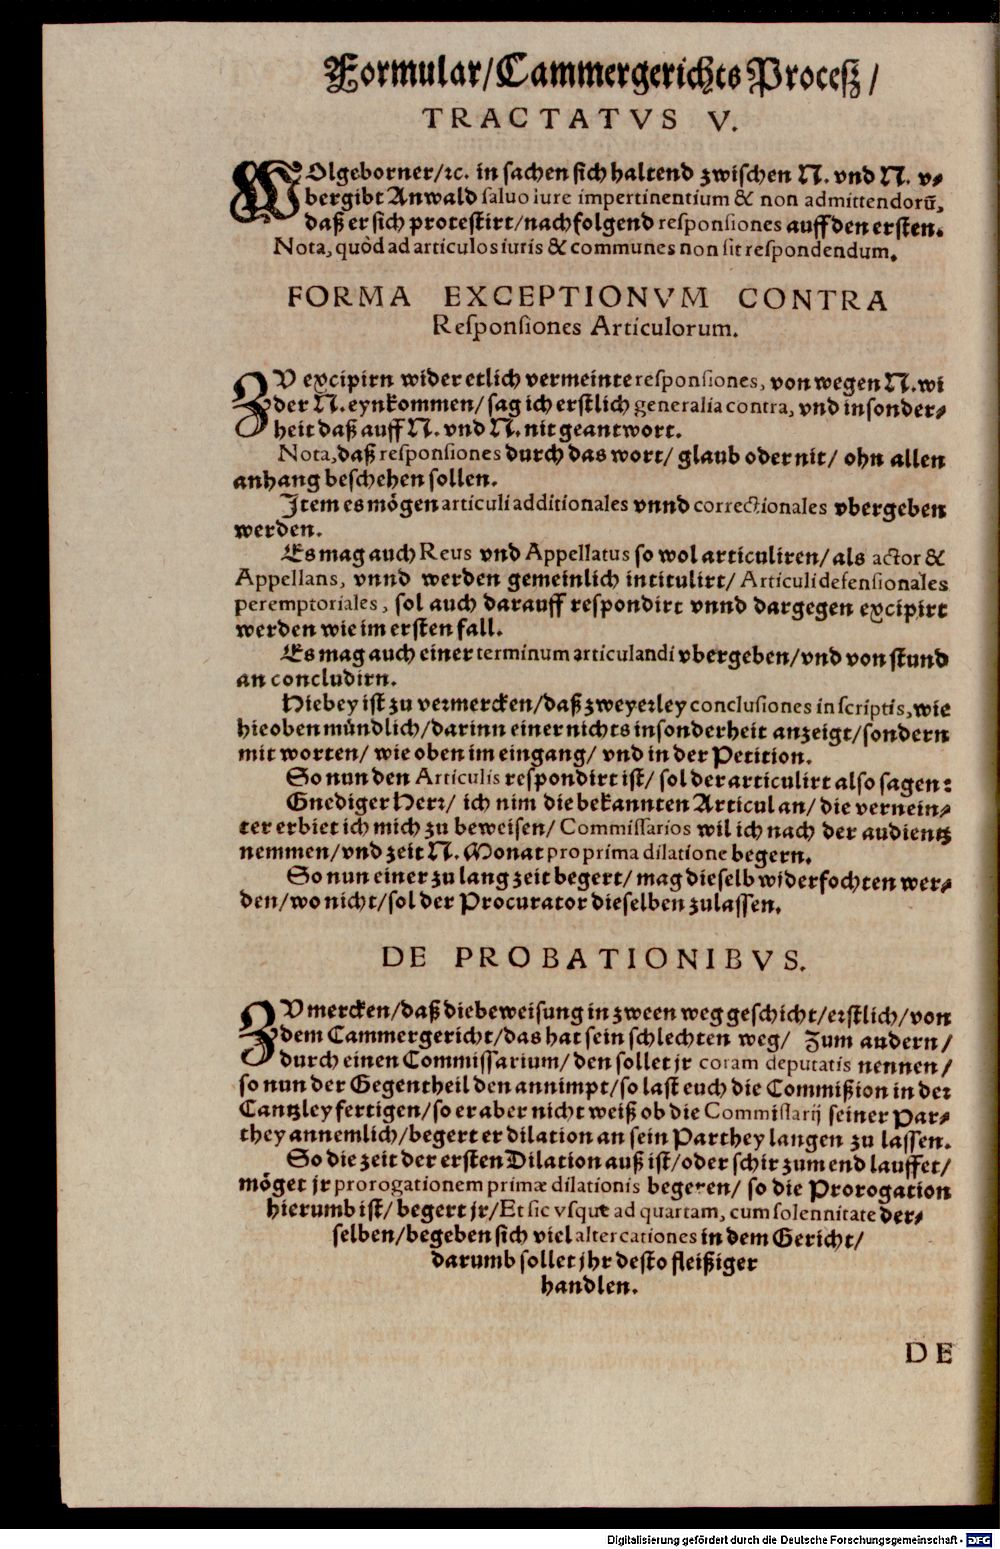 Formular/Cammergerichts Proceß/
TRACTATVS V.
WOlgeborner/ꝛc. in sachen sich haltend zwischen N. vnd N. v-
bergibt Anwald saluo iure impertinentium & non admittendorū,
daß er sich protestirt/nachfolgend responsiones auff den ersten.
Nota, quòd ad articulos iuris & communes non sit respondendum.
FORMA EXCEPTIONVM CONTRA
Responsiones Articulorum.
ZV excipirn wider etlich vermeinte responsiones, von wegen N. wi
der N. eynkommen/ sag ich erstlich generalia contra, vnd insonder-
heit daß auff N. vnd N. nit geantwort.
Nota, daß responsiones durch das wort/ glaub oder nit/ ohn allen
anhang beschehen sollen.
Item es mögen articuli additionales vnnd correctionales vbergeben
werden.
Es mag auch Reus vnd Appellatus so wol articuliren/ als actor &
Appellans, vnnd werden gemeinlich intitulirt/ Articuli defensionales
peremptoriales, sol auch darauff respondirt vnnd dargegen excipirt
werden wie im ersten fall.
Es mag auch einer terminum articulandi vbergeben/vnd von stund
an concludirn.
Hiebey ist zu vermercken/daß zweyerley conclusiones in scriptis, wie
hieoben mündlich/darinn einer nichts insonderheit anzeigt/sondern
mit worten/ wie oben im eingang/ vnd in der Petition.
So nun den Articulis respondirt ist/ sol der articulirt also sagen:
Gnediger Herr/ ich nim die bekannten Articul an/ die vernein-
ter erbiet ich mich zu beweisen/ Commissarios wil ich nach der audientz
nemmen/vnd zeit N. Monat pro prima dilatione begern.
So nun einer zu lang zeit begert/ mag dieselb widerfochten wer-
den/wo nicht/sol der Procurator dieselben zulassen.
DE PROBATIONIBVS.
ZV mercken/daß die beweisung in zween weg geschicht/erstlich/von
dem Cammergericht/das hat sein schlechten weg/ Zum andern/
durch einen Commissarium/ den sollet jr coram deputatis nennen/
so nun der Gegentheil den annimpt/so last euch die Commißion in der
Cantzley fertigen/so er aber nicht weiß ob die Commissarij seiner Par-
they annemlich/begert er dilation an sein Parthey langen zu lassen.
So die zeit der ersten Dilation auß ist/oder schir zum end lauffet/
möget jr prorogationem primæ dilationis begeren/ so die Prorogation
hierumb ist/ begert jr/Et sic vsque ad quartam, cum solennitate der-
selben/begeben sich viel altercationes in dem Gericht/
darumb sollet jhr desto fleißiger
handlen.
DE
Digitalisierung gefördert durch die Deutsche Forschungsgemeinschaft - DFG